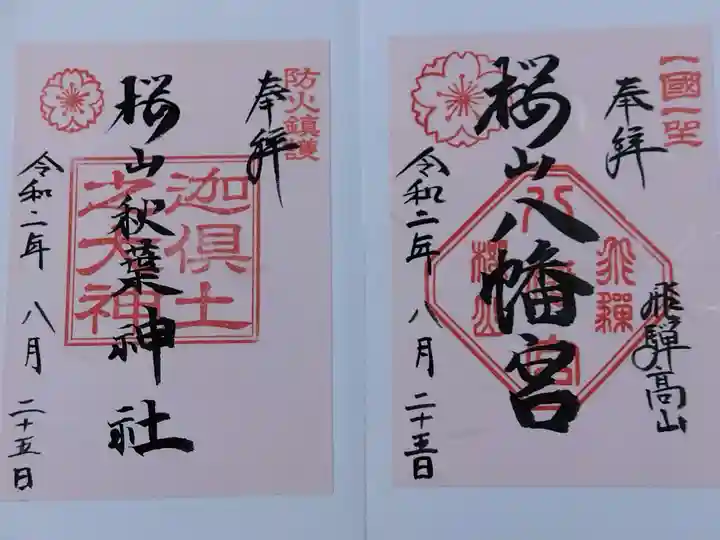 一國一社
奉拝
飛騨高山
桜山八幡宮
飛騨
八幡宮
桜山
令和二年 八月 二十五日
防火鎮護
奉拝
桜山秋葉神社
迦倶土
之大神
令和二年 八月 二十五日